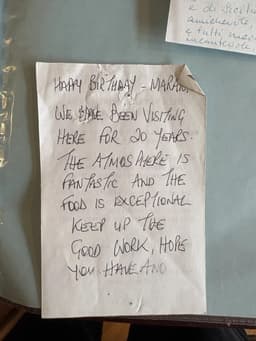 e di
amichevole,
e tutti
HAPPY BIRTHDAY - MARAM
WE HAVE BEEN VISITING
HERE FOR 20 YEARS.
THE ATMOSPHERE IS
FANTASTIC AND THE
FOOD IS EXCEPTIONAL
KEEP UP THE
GOOD WORK, HOPE
YOU HAVE AND